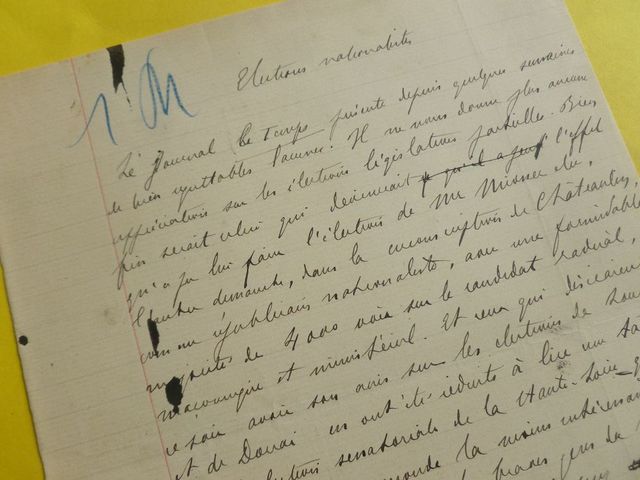 1 M
Elections nationalistes
Le Journal Le Temps présente depuis quelques semaines
de bien regrettables lacunes. Il ne nous donne plus aucune
appréciation sur les élections législatives partielles. Bien
fin serait celui qui devinerait l'effet
qu'a pu lui faire l'élection de Mr élu,
l'autre dimanche, dans la circonscription de Châteaulin,
comme républicain nationaliste, avec une formidable
majorité de 4000 voix sur le candidat radical,
maçonnique et ministériel. Et ceux qui désiraient
ce soir avoir son avis sur les élections de
et de Douai en ont été réduits à lire un
élection sénatoriale de la Haute-Loire
monde la moins intéressante
gens de la